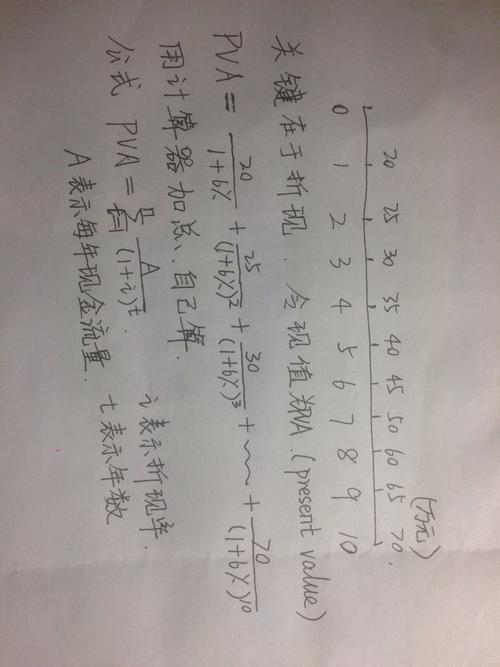 (万元)
20 25 30 35 40 45 50 60 65 70.
0 1 2 3 4 5 6 7 8 9 10
关键在于折现. 令现值为PVA.(present value)
PVA = 20/(1+6%) + 25/(1+6%)² + 30/(1+6%)³ + ~~ + 70/(1+6%)¹⁰
用计算器加总、自己算.
公式 PVA = ⁿΣₜ₌₁ A/(1+i)ᵗ. i表示折现率.
A表示每年现金流量. t表示年数